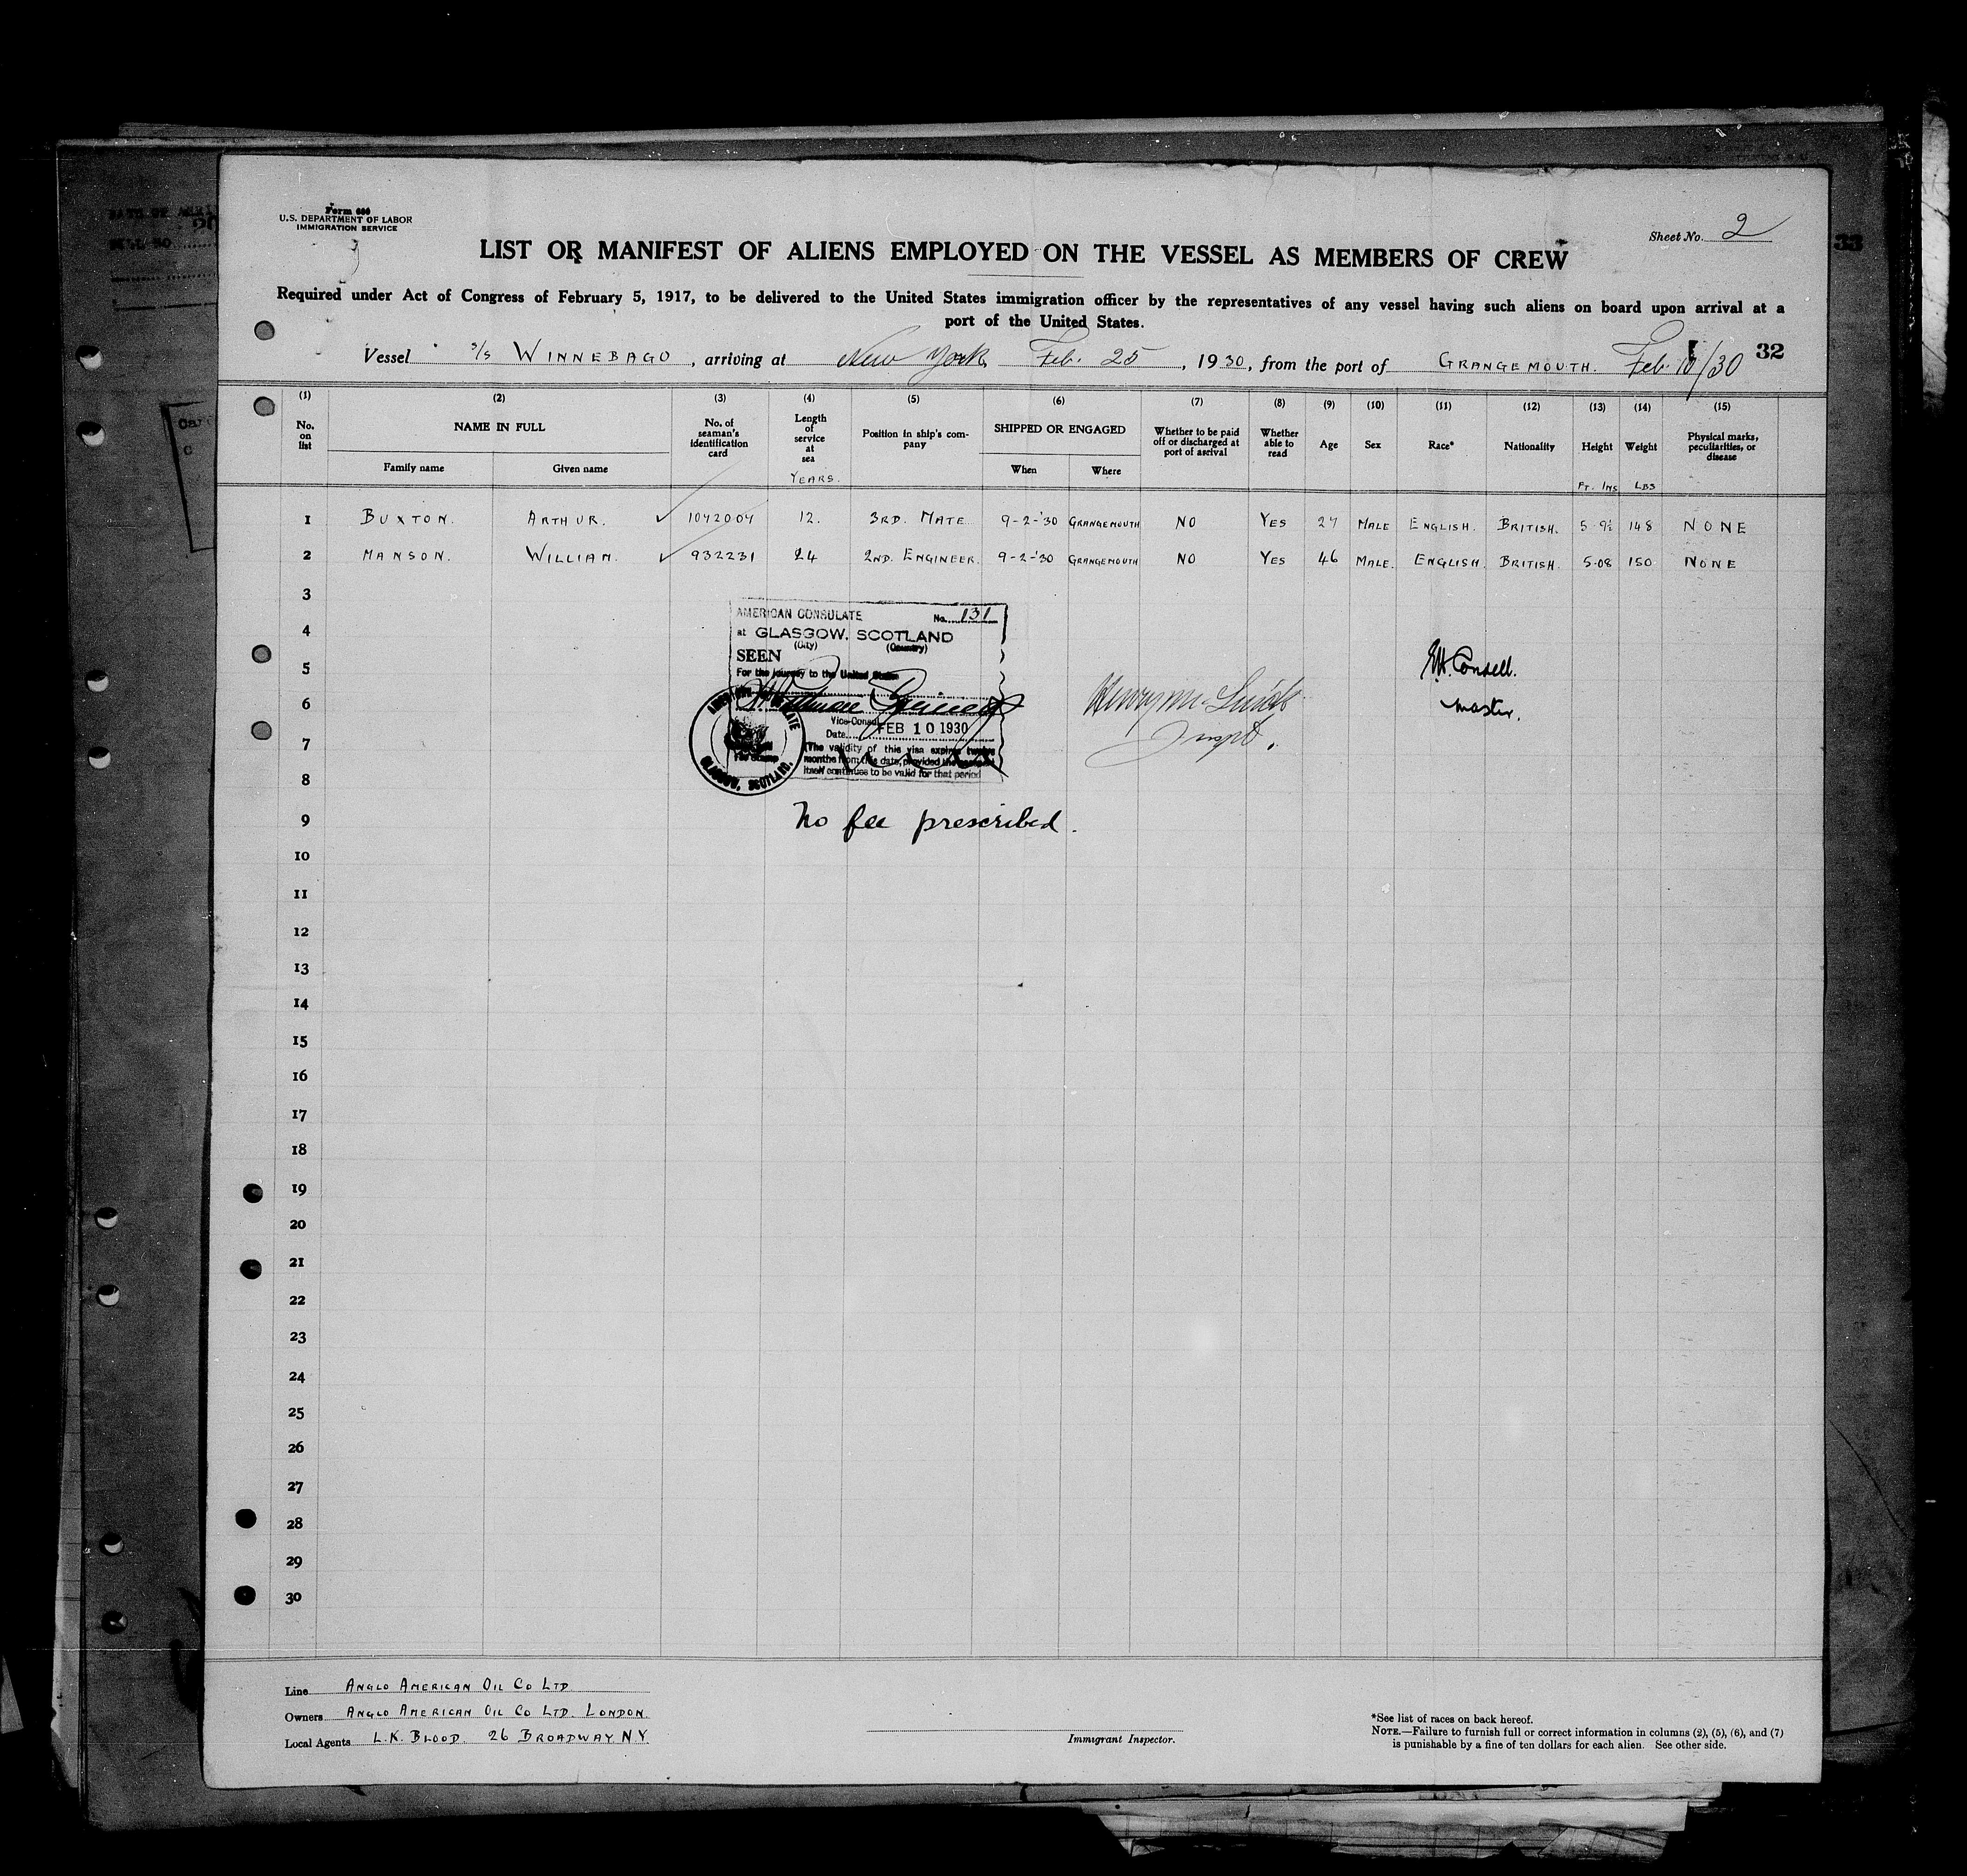 Form 680
U.S. DEPARTMENT OF LABOR
IMMIGRATION SERVICE
Sheet No. 2
33
LIST OR MANIFEST OF ALIENS EMPLOYED ON THE VESSEL AS MEMBERS OF CREW
Required under Act of Congress of February 5, 1917, to be delivered to the United States immigration officer by the representatives of any vessel having such aliens on board upon arrival at a
port of the United States.
Vessel S/S WINNEBAGO, arriving at New York Feb. 25, 1930, from the port of GRANGEMOUTH. Feb. 10/30 32
(1) (2) (3) (4) (5) (6) (7) (8) (9) (10) (11) (12) (13) (14) (15)
No. on list NAME IN FULL Family name Given name No. of seaman's identification card Length of service at sea YEARS. Position in ship's company SHIPPED OR ENGAGED When Where Whether to be paid off or discharged at port of arrival Whether able to read Age Sex Race* Nationality Height FT. INS Weight LBS Physical marks, peculiarities, or disease
1 BUXTON. ARTHUR. ✓ 1042004 12. 3RD. MATE 9-2-'30 GRANGEMOUTH NO YES 27 MALE ENGLISH. BRITISH. 5·9½ 148 NONE
2 MANSON. WILLIAM. ✓ 932231 24 2ND. ENGINEER. 9-2-'30 GRANGEMOUTH NO YES 46 MALE. ENGLISH. BRITISH. 5·08 150 NONE
3
4
5
6
7
8
9
10
11
12
13
14
15
16
17
18
19
20
21
22
23
24
25
26
27
28
29
30
AMERICAN CONSULATE No. 131
at GLASGOW, SCOTLAND
(City) (Country)
SEEN
For the journey to the United States
Vice-Consul
Date FEB 10 1930
(The validity of this visa expires twelve
months from this date, provided the
itself continues to be valid for that period
GLASGOW, SCOTLAND.
No fee prescribed.
Inspt.
Master.
Line ANGLO AMERICAN OIL CO LTD
Owners ANGLO AMERICAN OIL CO LTD. LONDON
Local Agents L.K. BLOOD. 26 BROADWAY. N.Y.
Immigrant Inspector.
*See list of races on back hereof.
NOTE.—Failure to furnish full or correct information in columns (2), (5), (6), and (7)
is punishable by a fine of ten dollars for each alien. See other side.